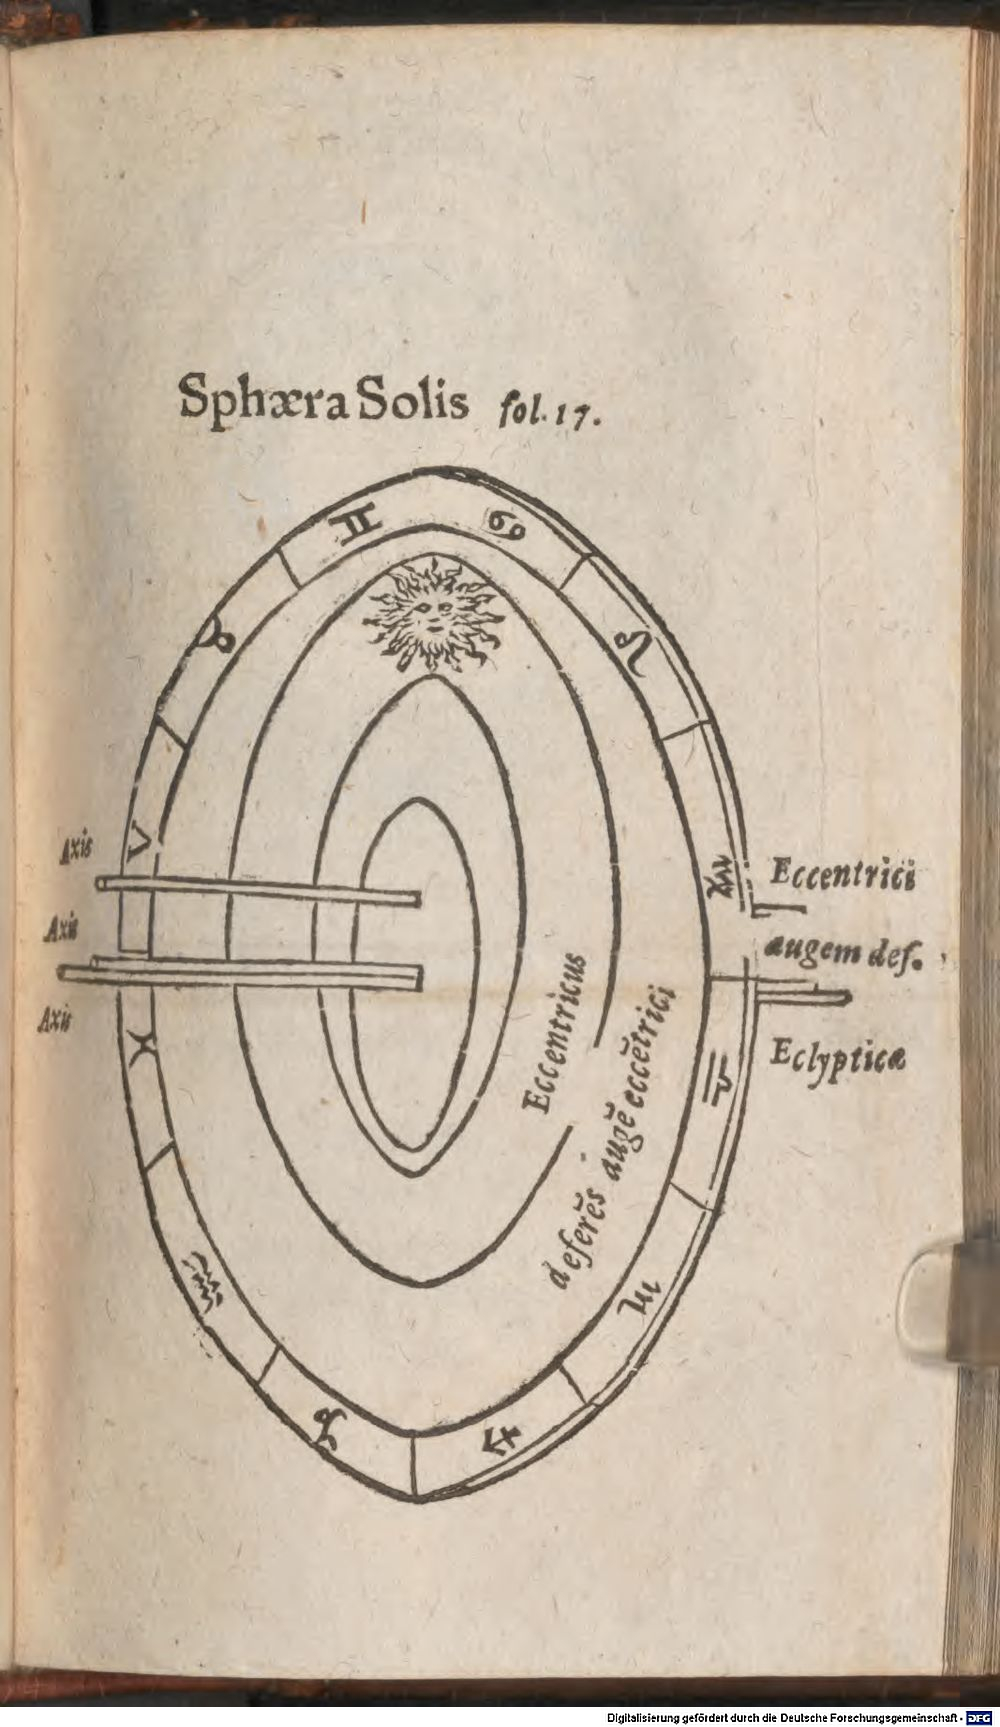 Sphæra Solis fol. 17.
♊ ♋
♉ ♌
♈ ♍
Axis
Axis
Axis
Eccentrici
augem def.
Eclypticæ
Eccentricus
deferẽs augẽ eccẽtrici
♓ ♎
♒ ♏
♑ ♐
Digitalisierung gefördert durch die Deutsche Forschungsgemeinschaft - DFG